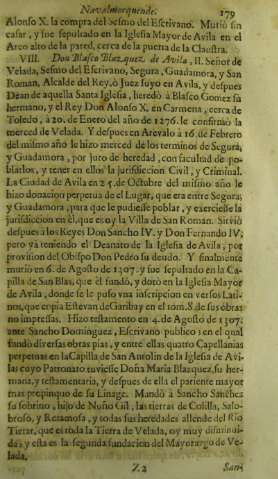 Navalmorquende. 179
Alonso X. la compra del Sesmo del Escrivano. Murió sin
casar, y fue sepultado en la Iglesia Mayor de Avila en el
Arco alto de la pared, cerca de la puerta de la Claustra.
VIII. Don Blasco Blazquez de Avila, II. Señor de
Velada, Sesmo del Escrivano, Segura, Guadamora, y San
Roman, Alcalde del Rey, ò Juez suyo en Avila, y despues
Dean de aquella Santa Iglesia, heredó à Blasco Gomez su
hermano, y el Rey Don Alonso X. en Carmena, cerca de
Toledo, à 20. de Enero del año de 1276. le confirmò la
merced de Velada. Y despues en Arevalo à 16. de Febrero
del mismo año le hizo merced de los terminos de Segura,
y Guadamora, por juro de heredad, con facultad de po-
blarlos, y tener en ellos la jurisdiccion Civil, y Criminal.
La Ciudad de Avila en 25. de Octubre del mismo año le
hizo donacion perpetua de el Lugar, que era entre Segura,
y Guadamora, para que le pudiesse poblar, y exercielle la
jurisdiccion en él, que es oy la Villa de San Roman. Sirvió
despues à los Reyes Don Sancho IV. y Don Fernando IV;
pero ya teniendo el Deanato de la Iglesia de Avila, por
provision del Obispo Don Pedro su deudo. Y finalmente
murió en 6. de Agosto de 1307. y fue sepultado en la Ca-
pilla de San Blas, que él fundó, y dotò en la Iglesia Mayor
de Avila, donde se le puso vna inscripcion en versos Lati-
nos, que copia Estevan de Garibay en el tom. 8. de sus obras
no impressas. Hizo testamento en 4. de Agosto de 1307.
ante Sancho Dominguez, Escrivano publico; en el qual
fundó diversas obras pias, y entre ellas quatro Capellanias
perpetuas en la Capilla de San Antolin de la Iglesia de Avi-
la, cuyo Patronato tuviesse Doña Maria Blazquez, su her-
mana, y testamentaria, y despues de ella el pariente mayor
mas propinquo de su Linage. Mandò à Sancho Sanchez
su sobrino, hijo de Nuño Gil, las tierras de Colilla, Salo-
broso, y Retamosa, y todas sus heredades allende del Rio
Tietar, que es toda la Tierra de Velada, oy muy disminui-
da, y esta es la segunda fundacion del Mayorazgo de Ve-
lada.
Z2 San-